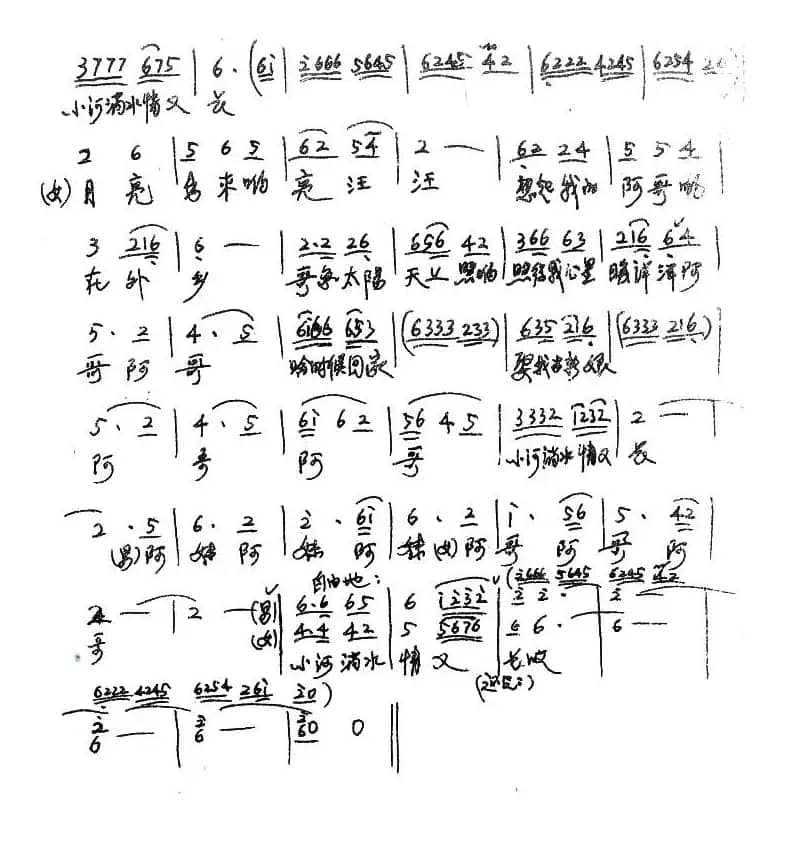 3777 675 | 6· (6i | 2666 5645 | 6245 42 | 6222 4245 | 6254
小河淌水情义 长
2 6 | 5 6 5 | 62 54 | 2 — | 62 24 | 5 5 4 |
(女) 月 亮 出 来 哟 亮 汪 汪 想起 我的 阿 哥 哟
3 216 | 6 — | 2·2 26 | 656 42 | 366 63 | 216 64 |
在 外 乡 哥象 太阳 天上 照哟 照得我心里 暖洋 洋阿
5· 2 | 4· 5 | 6i66 653 | (6333 233) | 635 216 | (6333 216) |
哥 阿 哥 啥时候回家 娶我当新娘
5· 2 | 4· 5 | 6i 6 2 | 56 4 5 | 3332 1232 | 2 — |
阿 哥 阿 哥 小河淌水情义 长
2· 5 | 6· 2 | 2· 6i | 6· 2 | i· 56 | 5· 42 |
(男) 阿 妹 阿 妹 阿 妹 (女) 阿 哥 阿 哥 阿
自由地: (2666 5645 6245 42
— | 2 — (男) | 6·6 65 | 6 i232 | 2 2· | 2 —
(女) | 4·4 42 | 5 5676 | 6 6· | 6 —
哥 小河 淌水 情 义 长
6222 4245 6254 26i 20)
2 — | 2 — | 20 0 ‖
6 — | 6 — | 60